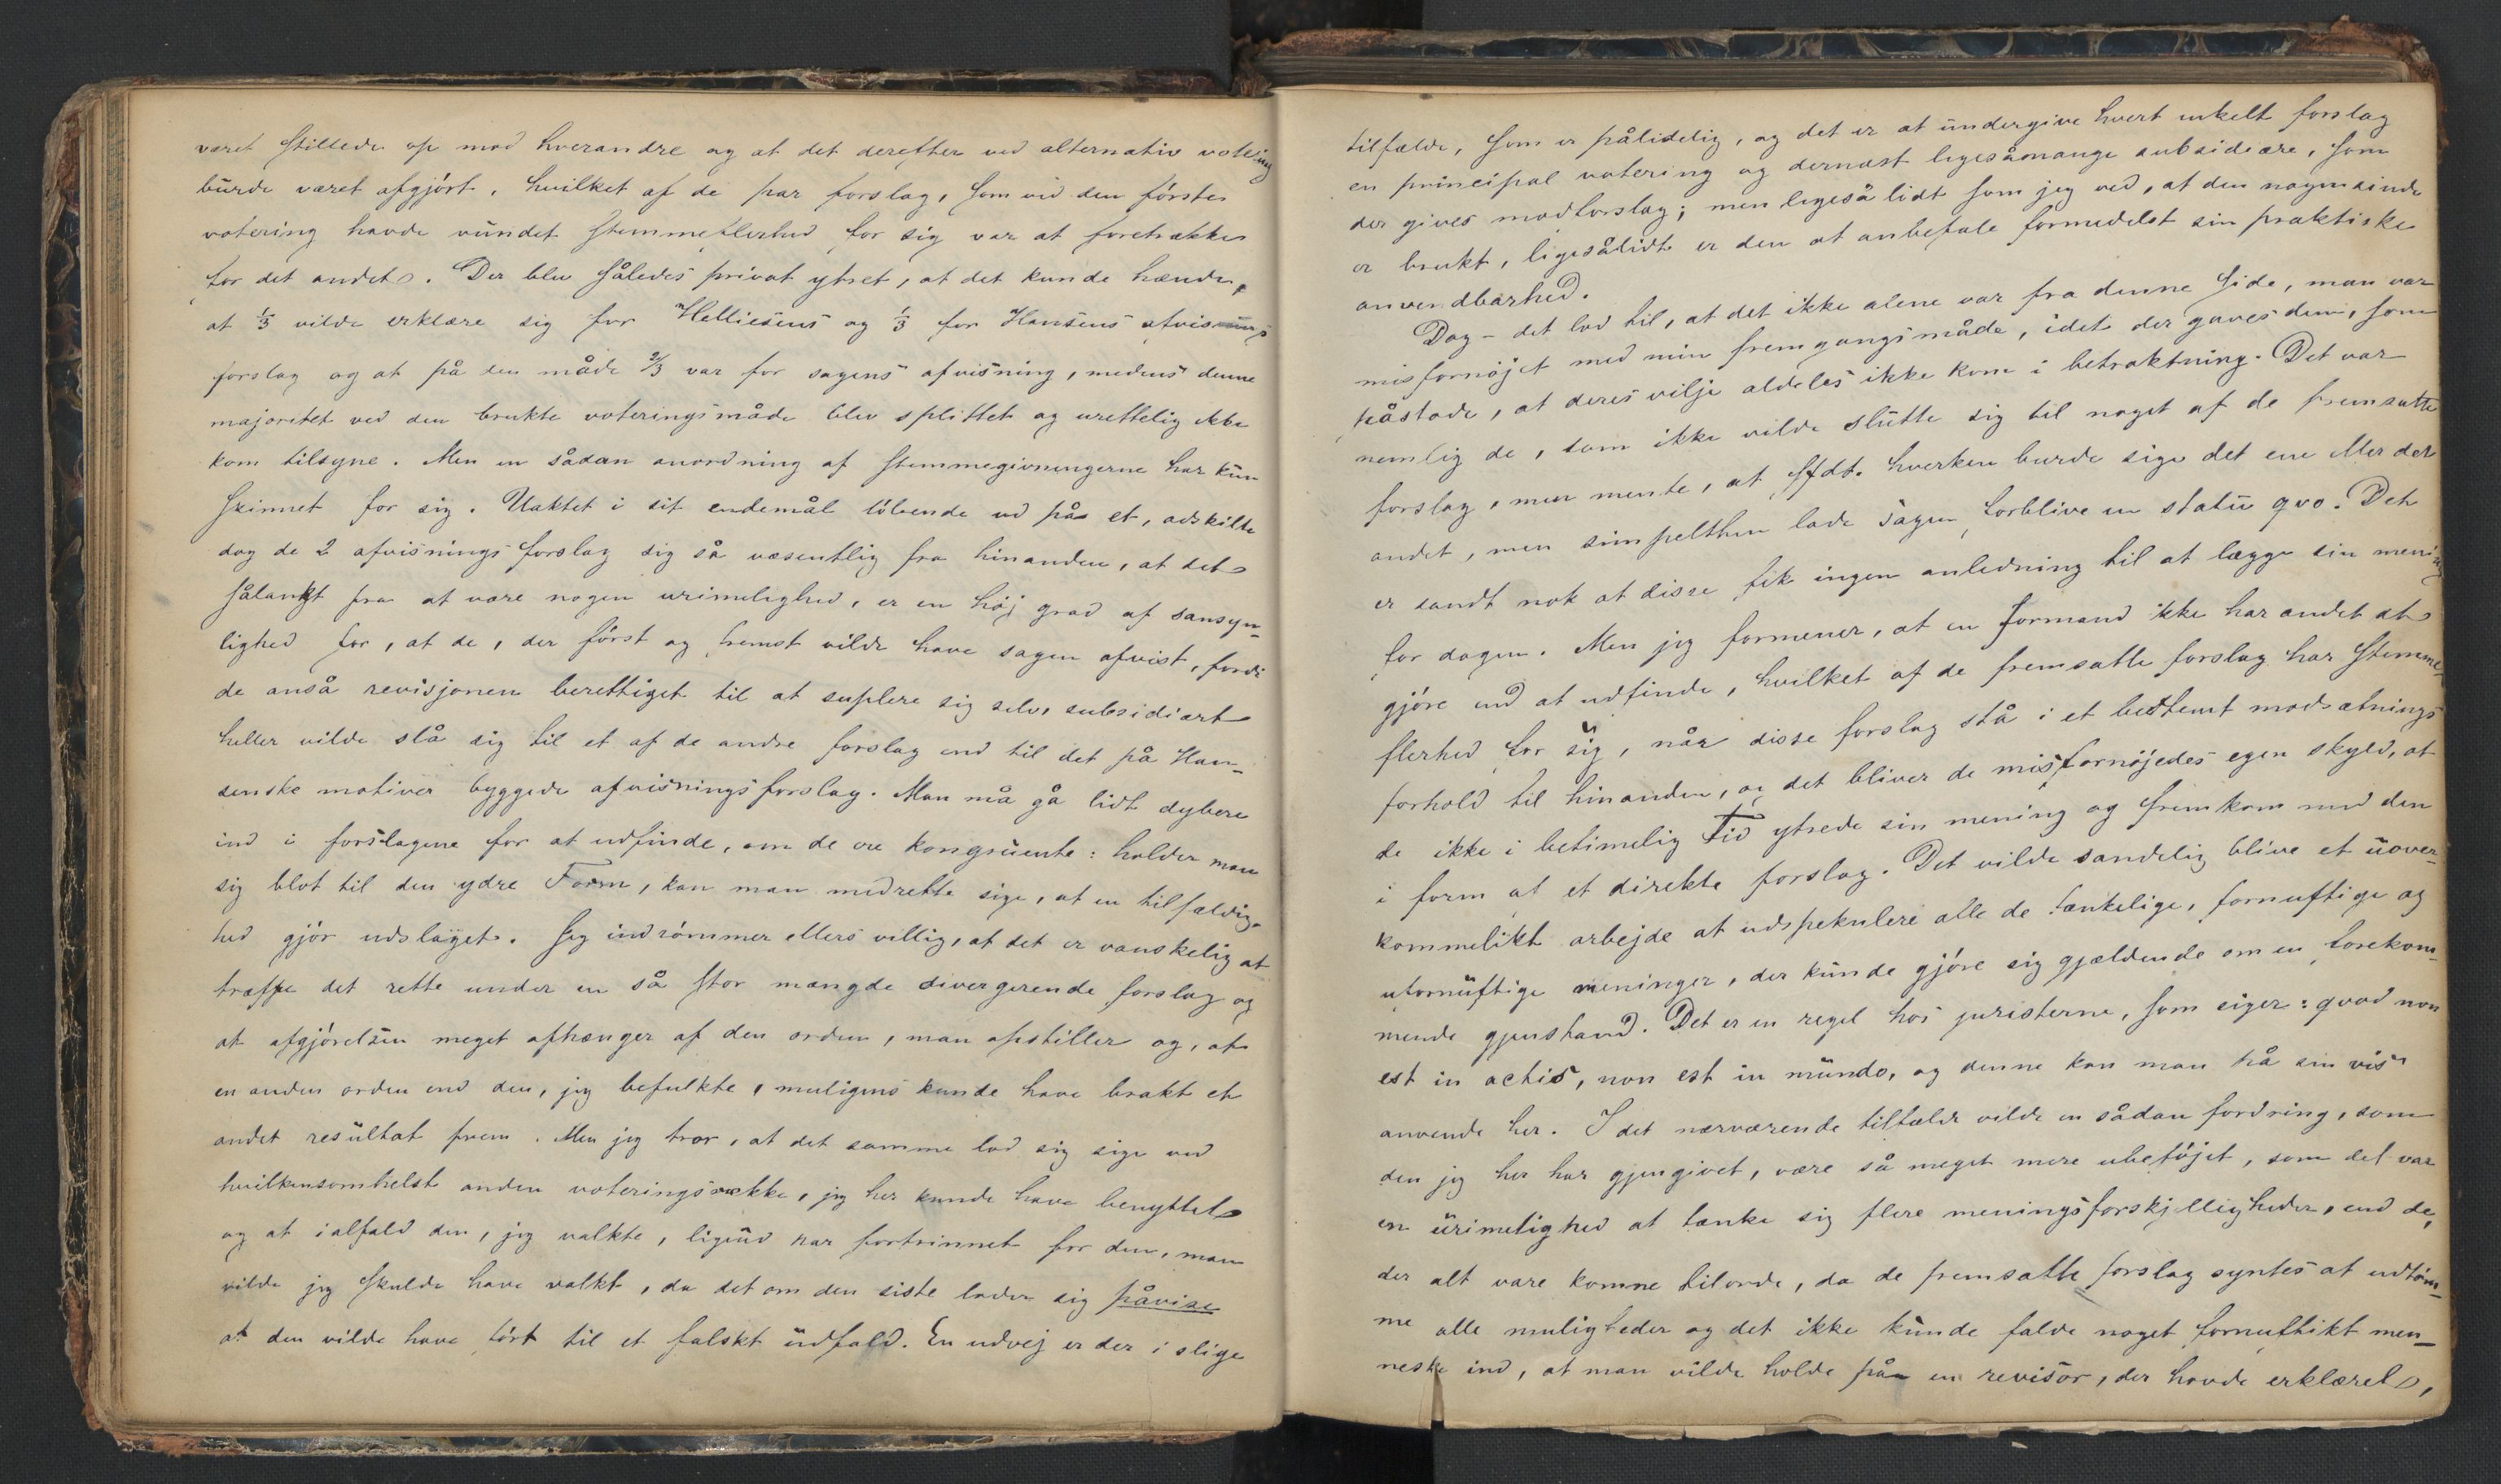 været stillede op mod hverandre og at det derefter ved alternativ votering
burde været afgjórt, hvilket af de par forslag, som ved den fórste
votering havde vundet stemmeflerhed for sig var at foretrække
for det andet. Der blev således privat ytret, at det kunde hænde,
at ⅓ vilde erklære sig for Helliesens og ⅓ for Hansens afvisnings
forslag og at på den måde ⅔ var for sagens afvisning, medens denne
majoritet ved den brukte voteringsmåde blev splittet og urettelig ikke
kom tilsyne. Men en sådan anordning af stemmegivningerne har kun
skinnet for sig. Uaktet i sit endemål lóbende ud på et, adskilte
dog de 2 afvisningsforslag sig så væsentlig fra hinanden, at det
sålangt fra at være nogen urimelighed, er en høj grad af sansyn-
lighed for, at de, der fórst og fremst vilde have sagen afvist, fordi
de anså revisjonen berettiget til at suplere sig selv, subsidiært
heller vilde slå sig til et af de andre forslag end til det på Han-
senske motiver byggede afvisningsforslag. Man må gå lidt dybere
ind i forslagene for at udfinde, om de ere kongruente: holder man
sig blot til den ydre Form, kan man medrette sige, at en tilfældig-
hed gjór udslaget. Jeg indrómmer ellers villig, at det er vanskelig at
træffe det rette under en så stor mængde divergerende forslag og
at afgjórelsen meget afhænger af den orden, man opstiller og, at
en anden orden end den, jeg befulkte, muligens kunde have brakt et
andet resultat frem. Men jeg tror, at det samme lod sig sige ved
hvilkensomhelst anden voteringsrække, jeg her kunde have benyttet
og at ialfald den, jeg valkte, ligeud har fortrinnet for den, man
vilde jeg skulde have valkt, da det om den siste lader sig påvise
at den vilde have fórt til et falskt udfald. En udvej er der i slige
tilfælde, som er pålidelig, og det er at undergive hvert enkelt forslag
en principal votering og dernæst ligesåmange subsidiære, som
der gives modforslag; men ligeså lidt som jeg ved, at den nogensinde
er brukt, ligesålidt er den at anbefale formedelst sin praktiske
anvendbarhed.
Dog - det lod til, at det ikke alene var fra denne side, man var
misfornøjet med min fremgangsmåde, idet der gaves dem, som
påstode, at deres vilje aldeles ikke kom i betraktning. Det var
nemlig de, som ikke vilde slutte sig til noget af de fremsatte
forslag, men mente, at Sfdt. hverken burde sige det ene eller det
andet, men simpelthen lade sagen forblive in statu qvo. Det
er sandt nok at disse fik ingen anledning til at lægge sin mening
for dagen. Men jeg formener, at en formand ikke har andet at
gjóre end at udfinde, hvilket af de fremsatte forslag har stemme-
flerhed for sig, når disse forslag stå i et bestemt modsætnings
forhold til hinanden, og det bliver de misfornøjedes egen skyld, at
de ikke i betimelig Tid ytrede sin mening og fremkom med den
i form af et direkte forslag. Det vilde sandelig blive et uover-
kommelikt arbejde at udspekulere alle de tænkelige, fornuftige og
ufornuftige meninger, der kunde gjóre sig gjældende om en forekom-
mende gjenstand. Det er en regel hos juristerne, som siger: qvod non
est in actis, non est in mundo, og denne kan man på sin vis
anvende her. I det nærværende tilfælde vilde en sådan fordring, som
den jeg her har gjengivet, være så meget mere ubeføjet, som det var
en urimelighed at tænke sig flere meningsforskjelligheder, end de,
der alt vare komne tilorde, da de fremsatte forslag syntes at udtóm-
me alle muligheder og det ikke kunde falde noget fornuftikt men-
neske ind, at man vilde holde på en revisor, der havde erklæret,